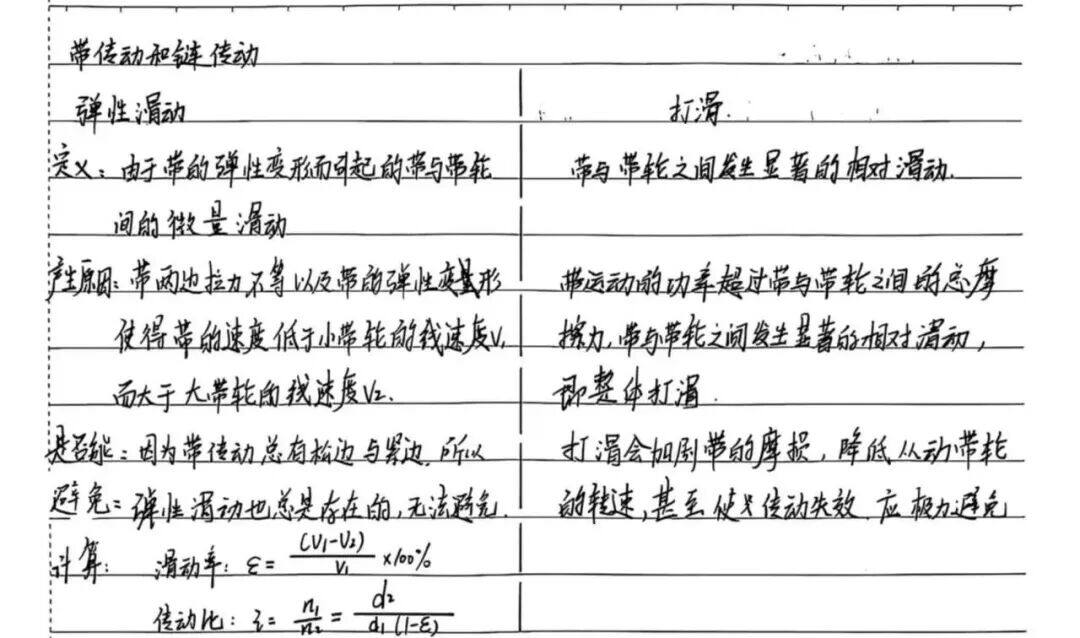 带传动和链传动
弹性滑动 打滑.
定义：由于带的弹性变形而引起的带与带轮 带与带轮之间发生显著的相对滑动.
间的微量滑动
产生原因：带两边拉力不等以及带的弹性变形 带运动的功率超过带与带轮之间的总摩
使得带的速度低于小带轮的线速度V₁ 擦力,带与带轮之间发生显著的相对滑动，
而大于大带轮的线速度V₂. 即整体打滑.
是否能：因为带传动总有松边与紧边,所以 打滑会加剧带的摩损，降低从动带轮
避免：弹性滑动也总是存在的,无法避免. 的转速,甚至使传动失效.应极力避免
计算： 滑动率：ε= (V₁-V₂)/V₁ ×100%
传动比：i= n₁/n₂ = d₂/d₁(1-ε)